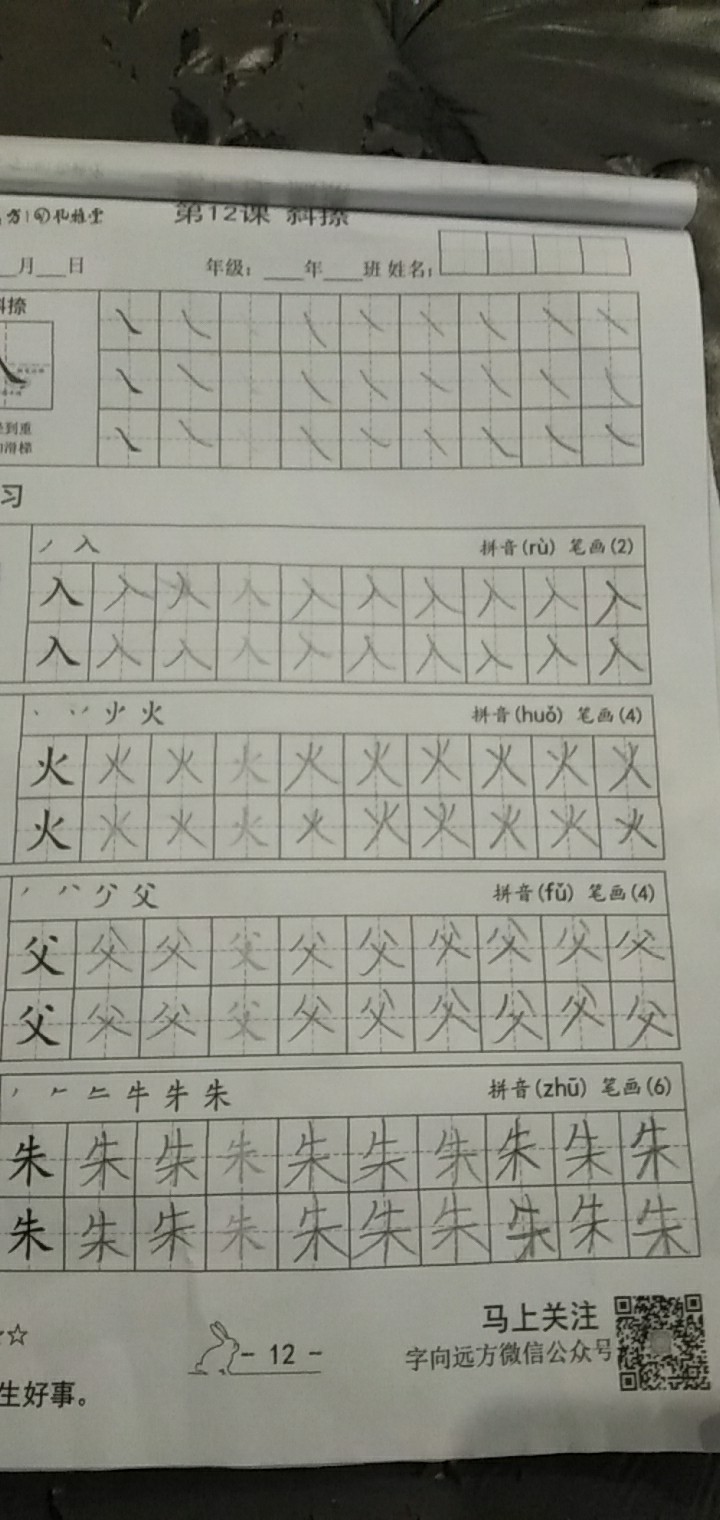 第12课 斜捺
月 日 年级： 年 班 姓名：
斜捺
到重
滑梯
习
丿 入 拼音(rù) 笔画(2)
入 入 入 入 入 入 入 入 入 入
入 入 入 入 入 入 入 入 入 入
火 拼音(huǒ) 笔画(4)
火 火 火 火 火 火 火 火 火 火
火 火 火 火 火 火 火 火 火 火
父 拼音(fǔ) 笔画(4)
父 父 父 父 父 父 父 父 父 父
父 父 父 父 父 父 父 父 父 父
牛 朱 拼音(zhū) 笔画(6)
朱 朱 朱 朱 朱 朱 朱 朱 朱 朱
朱 朱 朱 朱 朱 朱 朱 朱 朱 朱
☆
生好事。
- 12 -
马上关注
字向远方微信公众号